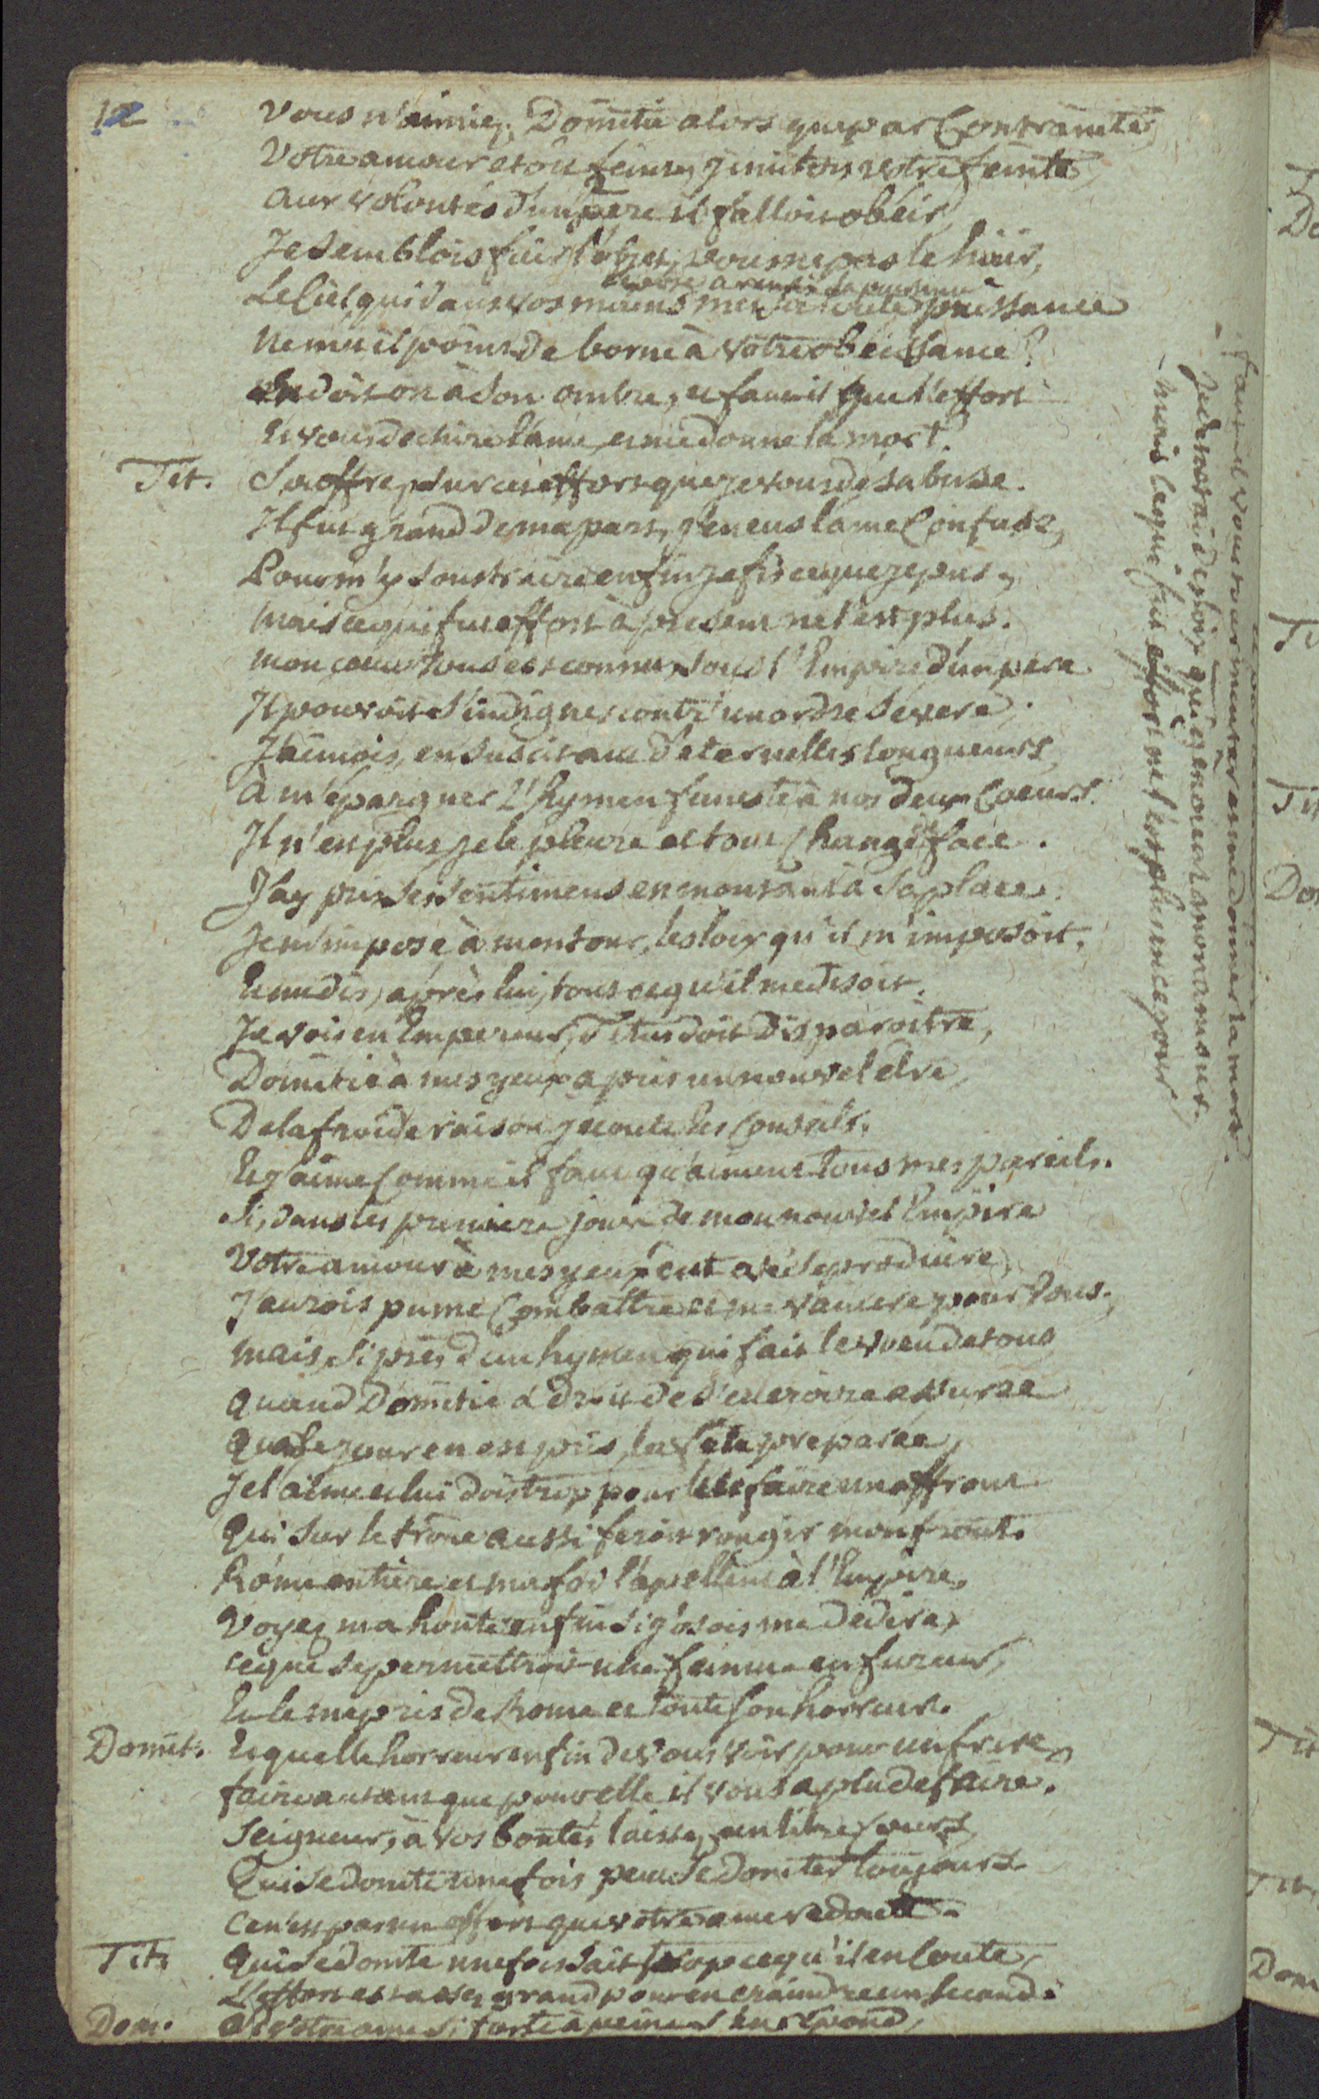 12
Vous n'aimiez Domitie alors que par Contrainte
Votre amour etoit feinte, j'imitois votre feinte
aux volontés d'un pere il falloit obéir
Je semblois fuir l'objet, pour ne pas le haïr,
Le Ciel qui dans vos mains met toute puissance
Ne met il point de borne à votre obeissance?
En doit on à son ombre, et faut-il que l'effort
Et vous dechire l'ame et me donne la mort.
Tit. Souffrez sur cet effort que je vous desabuse.
Il fut grand de ma part, j'en eus l'ame Confuse,
Pour m'y soustraire enfin je fis ce que je pus,
mais ce qui fut effort à present ne l'est plus.
mon coeur vous est connu, sous l'Empire d'un pere
Il pouvoit s'indigner contre un ordre severe,
J'aimois, en suscitant d'eternelles longueurs
à m'épargner L'hymen funeste à nos deux Coeurs.
Il n'est plus je le pleure et tout Change de face.
J'ay pris ses sentimens en montant à sa place
Je m'impose à mon tour, les loix qu'il m'imposoit.
Et me dis, après lui, tout ce qu'il me disoit.
Je vois en Empereur, Titus doit Disparoitre,
Domitie à mes yeux a pris un nouvel etre,
De la froide raison j'ecoute les Conseils.
Et j'aime Comme il faut qu'aiment tous mes pareils.
Si, dans les premiers jours de mon nouvel Empire
Votre amour à mes yeux eut osé se produire,
J'aurois pu me Combattre et me vaincre pour Vous.
mais, si près d'un hymen qui fait le voeu de tous
quand Domitie a droit de s'en croire assurée
que le jour en est pris, la fête preparée,
Je l'aime et lui dois trop pour lui faire un affront
Qui sur le trône aussi feroit rougir mon front.
Rome entiere et ma foi l'apellent à l'Empire.
Voyez ma honte enfin si j'osois me dédire,
ce que se permettroit une femme en fureur,
Et le mepris de Rome et toute son horreur.
Domit. Et quelle horreur enfin de vous voir pour un frere
faire autant que pour elle il vous a plu de faire.
Seigneur, à vos bontés laissez un libre cours,
Qui se domte une fois peut se domter toujours
Ce n'est pas un effort que votre ame redoute.
Tit. Qui se domte une fois sait trop ce qu'il en Coute,
L'effort est assez grand pour en craindre un second.
Dom. Ah votre ame si forte à peine s'en répond,
faut-il vous tourmenter et me donner la mort.
mais ce qui fut effort ne l'est plus en ce jour